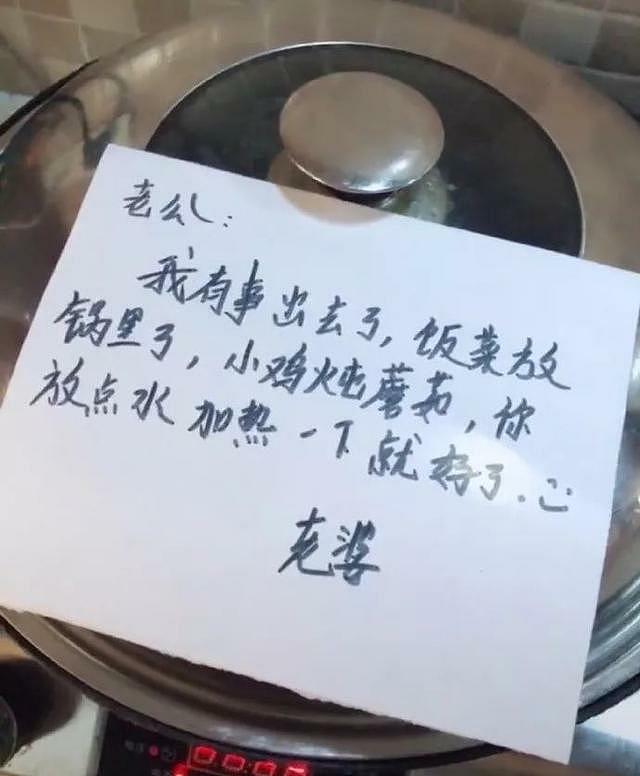 老公:
我有事出去了,饭菜放
锅里了,小鸡炖蘑菇,你
放点水加热一下就好了.
老婆